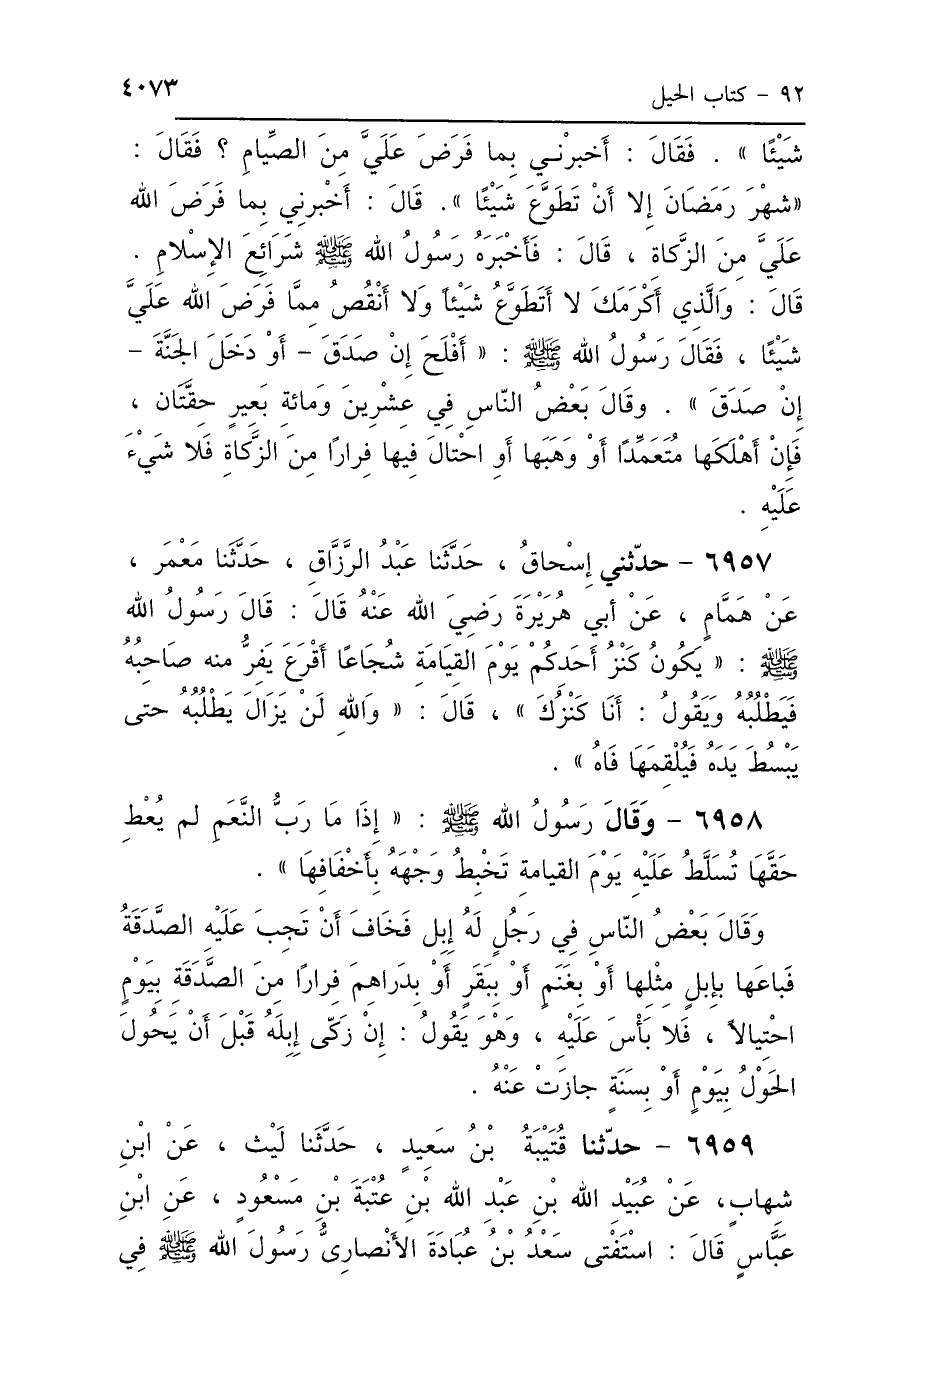 ٩٢ - كتاب الحيل ٤٠٧٣
شَيْئًا » . فَقَالَ : أَخبرْنـي بِما فَرَضَ عَلَيَّ مِنَ الصِّيامِ ؟ فَقَالَ :
«شهْرَ رَمَضَانَ إلا أنْ تَطَوَّعَ شَيْئًا ». قَالَ : أَخْبْرنِي بِما فَرَضَ الله
عَلَيَّ مِنَ الزَّكاةِ ، قَالَ : فَأَخْبَرَهُ رَسُولُ الله ﷺ شَرَائِعَ الإسْلامِ .
قَالَ : وَالَّذي أَكْرَمَكَ لا أَتَطَوَّعُ شَيْئاً وَلا أَنْقُصُ مِمَّا فَرَضَ الله عَلَيَّ
شَيْئًا ، فَقَالَ رَسُولُ الله ﷺ : « أَفْلَحَ إنْ صَدَقَ - أوْ دَخَلَ الجَنَّةَ -
إنْ صَدَقَ » . وقَالَ بَعْضُ النّاسِ فِي عِشْرِينَ وَمائةِ بَعِيرٍ حِقَّتَان ،
فَإنْ أَهْلَكَها مُتَعَمِّدًا أوْ وَهَبَها أو احْتالَ فِيها فِرارًا مِنَ الزَّكاةِ فَلا شَيْءَ
عَلَيْهِ .
٦٩٥٧ - حدّثني إسْحاقُ ، حَدَّثَنا عَبْدُ الرَّزَّاقِ ، حَدَّثَنا مَعْمَر ،
عَنْ هَمَّامٍ ، عَنْ أبي هُرَيْرَةَ رَضِيَ الله عَنْهُ قَالَ : قَالَ رَسُولُ الله
ﷺ : « يَكُونُ كَنْزُ أَحَدِكُمْ يَوْمَ القيَامَةِ شُجَاعًا أَقْرَعَ يَفِرُّ منه صَاحِبُهُ
فَيَطْلُبُهُ وَيَقُولُ : أَنَا كَنْزُكَ » ، قَالَ : « والله لَنْ يَزَالَ يَطْلُبُهُ حتى
يَبْسُطَ يَدَهُ فَيُلْقِمَهَا فَاهُ » .
٦٩٥٨ - وَقَالَ رَسُولُ الله ﷺ : « إذَا مَا رَبُّ النَّعَمِ لم يُعْطِ
حَقَّهَا تُسَلَّطُ عَلَيْهِ يَوْمَ القيامةِ تَخْبِطُ وَجْهَهُ بِأَخْفَافِهَا » .
وَقَالَ بَعْضُ النّاسِ في رَجُلٍ لَهُ إبِل فَخَافَ أَنْ تَجِبَ عَلَيْهِ الصَّدَقَةُ
فَباعَها بِإبلٍ مِثْلِها أوْ بِغَنَمٍ أوْ بِبَقَرٍ أوْ بِدَراهِمَ فِرارًا مِنَ الصَّدَقَةِ بِيَوْمٍ
احْتِيالاً ، فَلا بَأْسَ عَلَيْهِ ، وَهْوَ يَقُولُ : إنْ زَكّى إبِلَهُ قَبْلَ أنْ يَحُولَ
الحَوْلُ بِيَوْمٍ أوْ بِسَنَةٍ جازَتْ عَنْهُ .
٦٩٥٩ - حدّثنا قُتَيْبَةُ بْنُ سَعِيدٍ ، حَدَّثَنا لَيْث ، عَنْ ابْنِ
شِهابٍ، عَنْ عُبَيْدِ الله بْنِ عَبْدِ الله بْنِ عتْبَةَ بْنِ مَسْعُودٍ ، عَنِ ابْنِ
عَبَّاسٍ قَالَ : اسْتَفْتى سَعْدُ بْنُ عُبَادَةَ الأنْصارِىُّ رَسُولَ الله ﷺ فِي